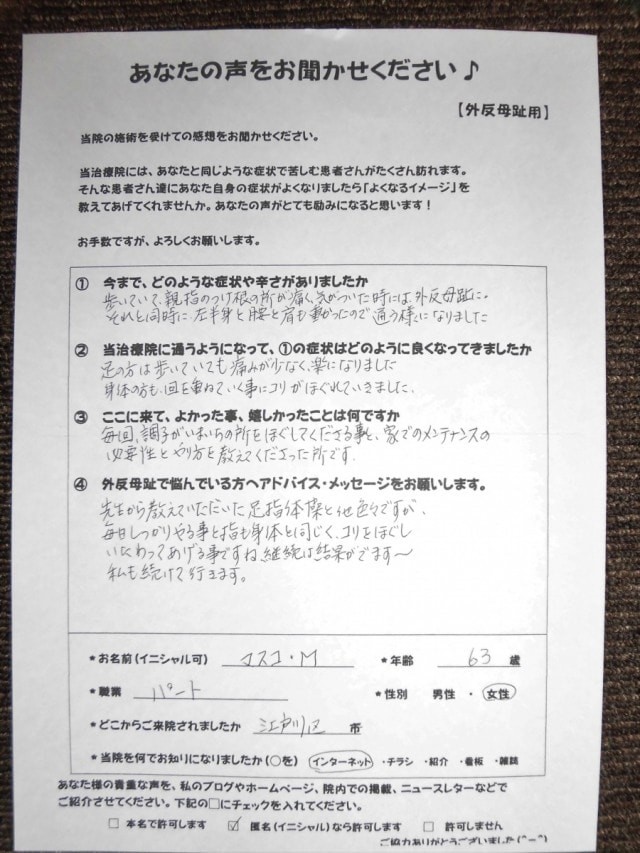 あなたの声をお聞かせください♪
【外反母趾用】
当院の施術を受けての感想をお聞かせください。
当治療院には、あなたと同じような症状で苦しむ患者さんがたくさん訪れます。
そんな患者さん達にあなた自身の症状がよくなりましたら「よくなるイメージ」を
教えてあげてくれませんか。あなたの声がとても励みになると思います！
お手数ですが、よろしくお願いします。
① 今まで、どのような症状や辛さがありましたか
歩いていて、親指のつけ根の所が痛く、気がついた時には、外反母趾に。
それと同時に、左半身と腰と肩も重かったので通う様になりました
② 当治療院に通うようになって、①の症状はどのように良くなってきましたか
足の方は歩いていても痛みが少なく、楽になりました
身体の方も、回を重ねていく事にコリがほぐれていきました。
③ ここに来て、よかった事、嬉しかったことは何ですか
毎回、調子がいまいちの所をほぐしてくださる事と、家でのメンテナンスの
必要性とやり方を教えてくださった所です。
④ 外反母趾で悩んでいる方へアドバイス・メッセージをお願いします。
先生から教えていただいた足指体操と他色々ですが、
毎日しっかりやる事と指も身体と同じく、コリをほぐし
いたわってあげる事ですね 継続は結果がでます〜
私も続けて行きます。
*お名前（イニシャル可） マスコ・M *年齢 63 歳
*職業 パート *性別 男性 ・ 女性
*どこからご来院されましたか 江戸川区 市
*当院を何でお知りになりましたか（○を） インターネット ・チラシ ・紹介 ・看板 ・雑誌
あなた様の貴重な声を、私のブログやホームページ、院内での掲載、ニュースレターなどで
ご紹介させてください。下記の□にチェックを入れてください。
□ 本名で許可します ☑ 匿名（イニシャル）なら許可します □ 許可しません
ご協力ありがとうございました（^ー^）